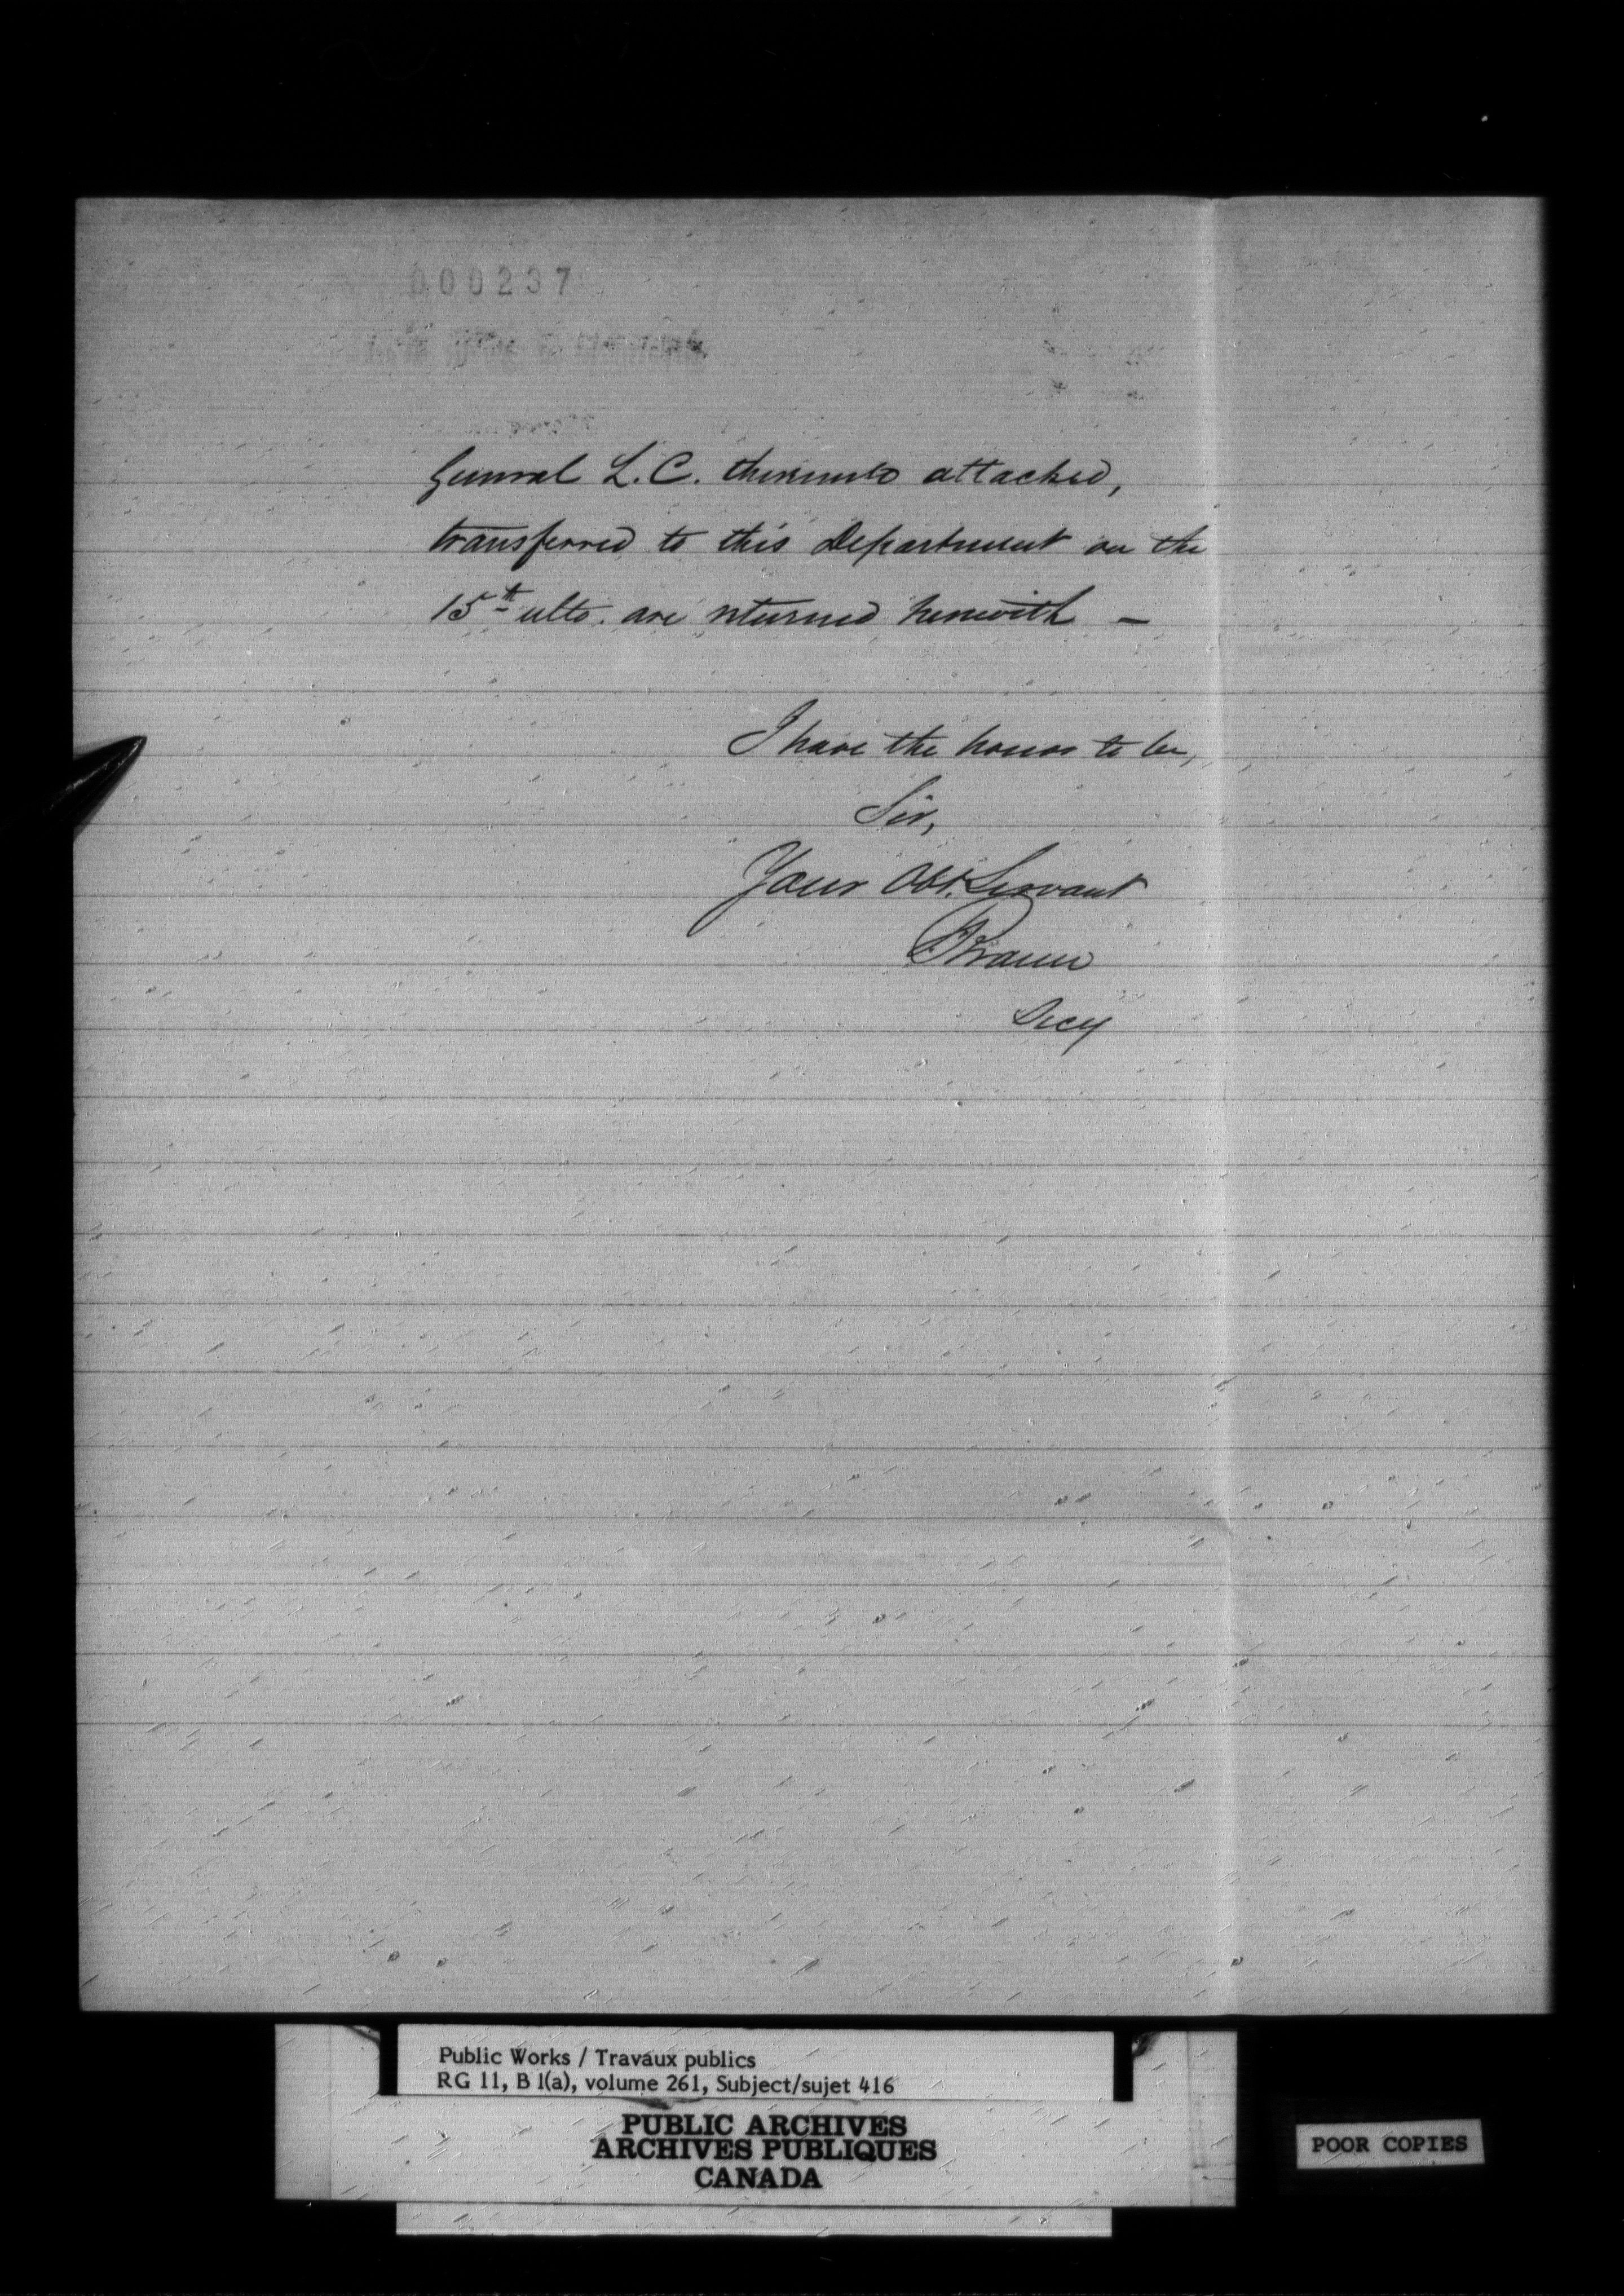 000237
General L.C. thereunto attached,
transferred to this Department on the
15th ulto. are returned herewith —
I have the honor to be,
Sir,
Your Obt. Servant
F. Braun
Secy
Public Works / Travaux publics
RG 11, B 1(a), volume 261, Subject/sujet 416
PUBLIC ARCHIVES
ARCHIVES PUBLIQUES
CANADA
POOR COPIES